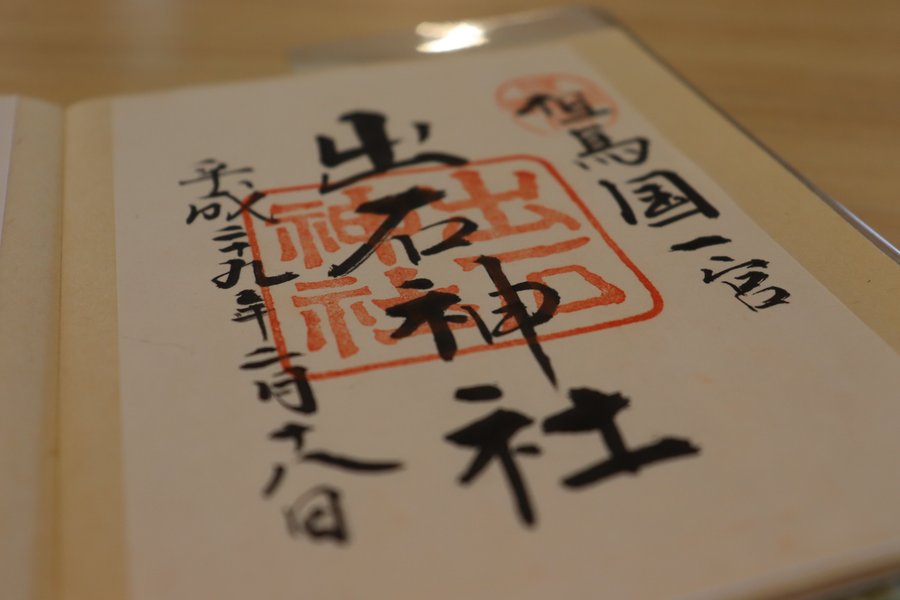 但馬国一宮
出石神社
出石神社
平成二十九年二月十八日